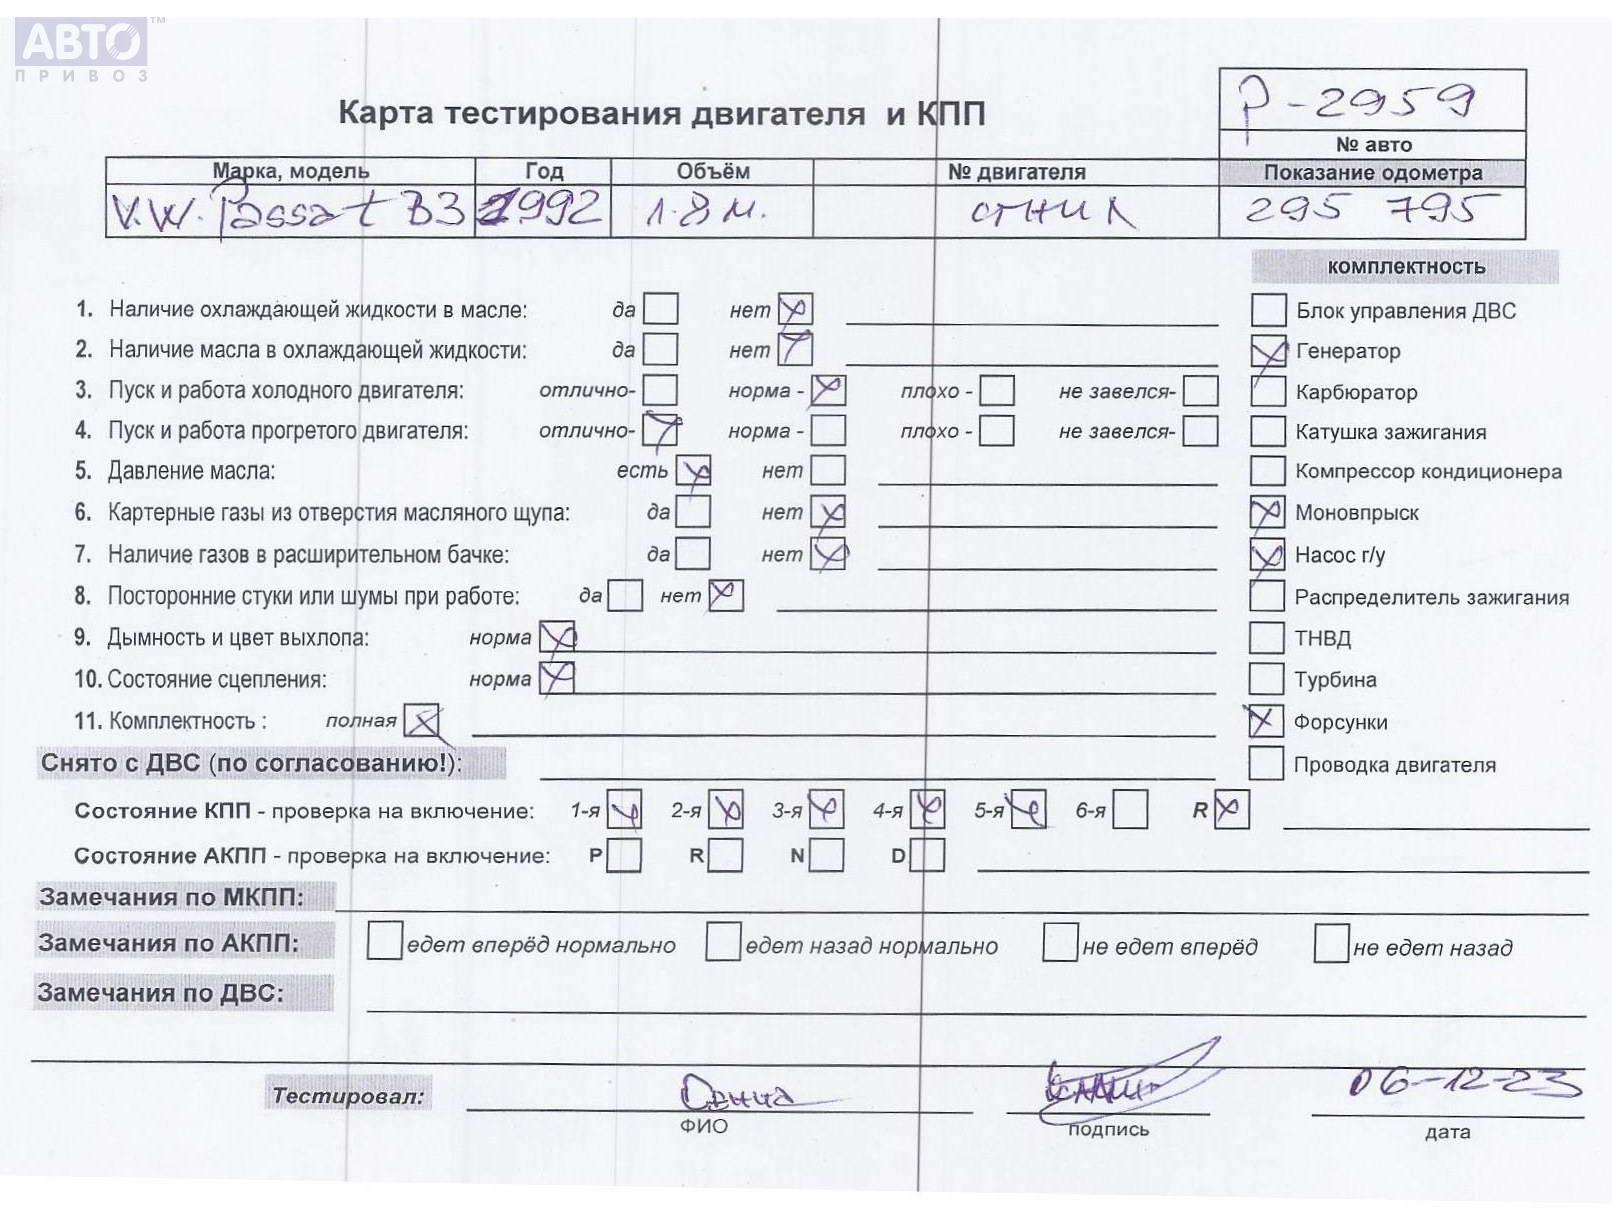 АВТО™
ПРИВОЗ
Карта тестирования двигателя и КПП
Р-2959
№ авто
Марка, модель Год Объём № двигателя Показание одометра
V.W. Passat B3 1992 1.8 м. 295 795
комплектность
1. Наличие охлаждающей жидкости в масле: да нет Блок управления ДВС
2. Наличие масла в охлаждающей жидкости: да нет Генератор
3. Пуск и работа холодного двигателя: отлично- норма - плохо - не завелся- Карбюратор
4. Пуск и работа прогретого двигателя: отлично- норма - плохо - не завелся- Катушка зажигания
5. Давление масла: есть нет Компрессор кондиционера
6. Картерные газы из отверстия масляного щупа: да нет Моновпрыск
7. Наличие газов в расширительном бачке: да нет Насос г/у
8. Посторонние стуки или шумы при работе: да нет Распределитель зажигания
9. Дымность и цвет выхлопа: норма ТНВД
10. Состояние сцепления: норма Турбина
11. Комплектность : полная Форсунки
Снято с ДВС (по согласованию!): Проводка двигателя
Состояние КПП - проверка на включение: 1-я 2-я 3-я 4-я 5-я 6-я R
Состояние АКПП - проверка на включение: P R N D
Замечания по МКПП:
Замечания по АКПП: едет вперёд нормально едет назад нормально не едет вперёд не едет назад
Замечания по ДВС:
Тестировал: 06-12-23
ФИО подпись дата